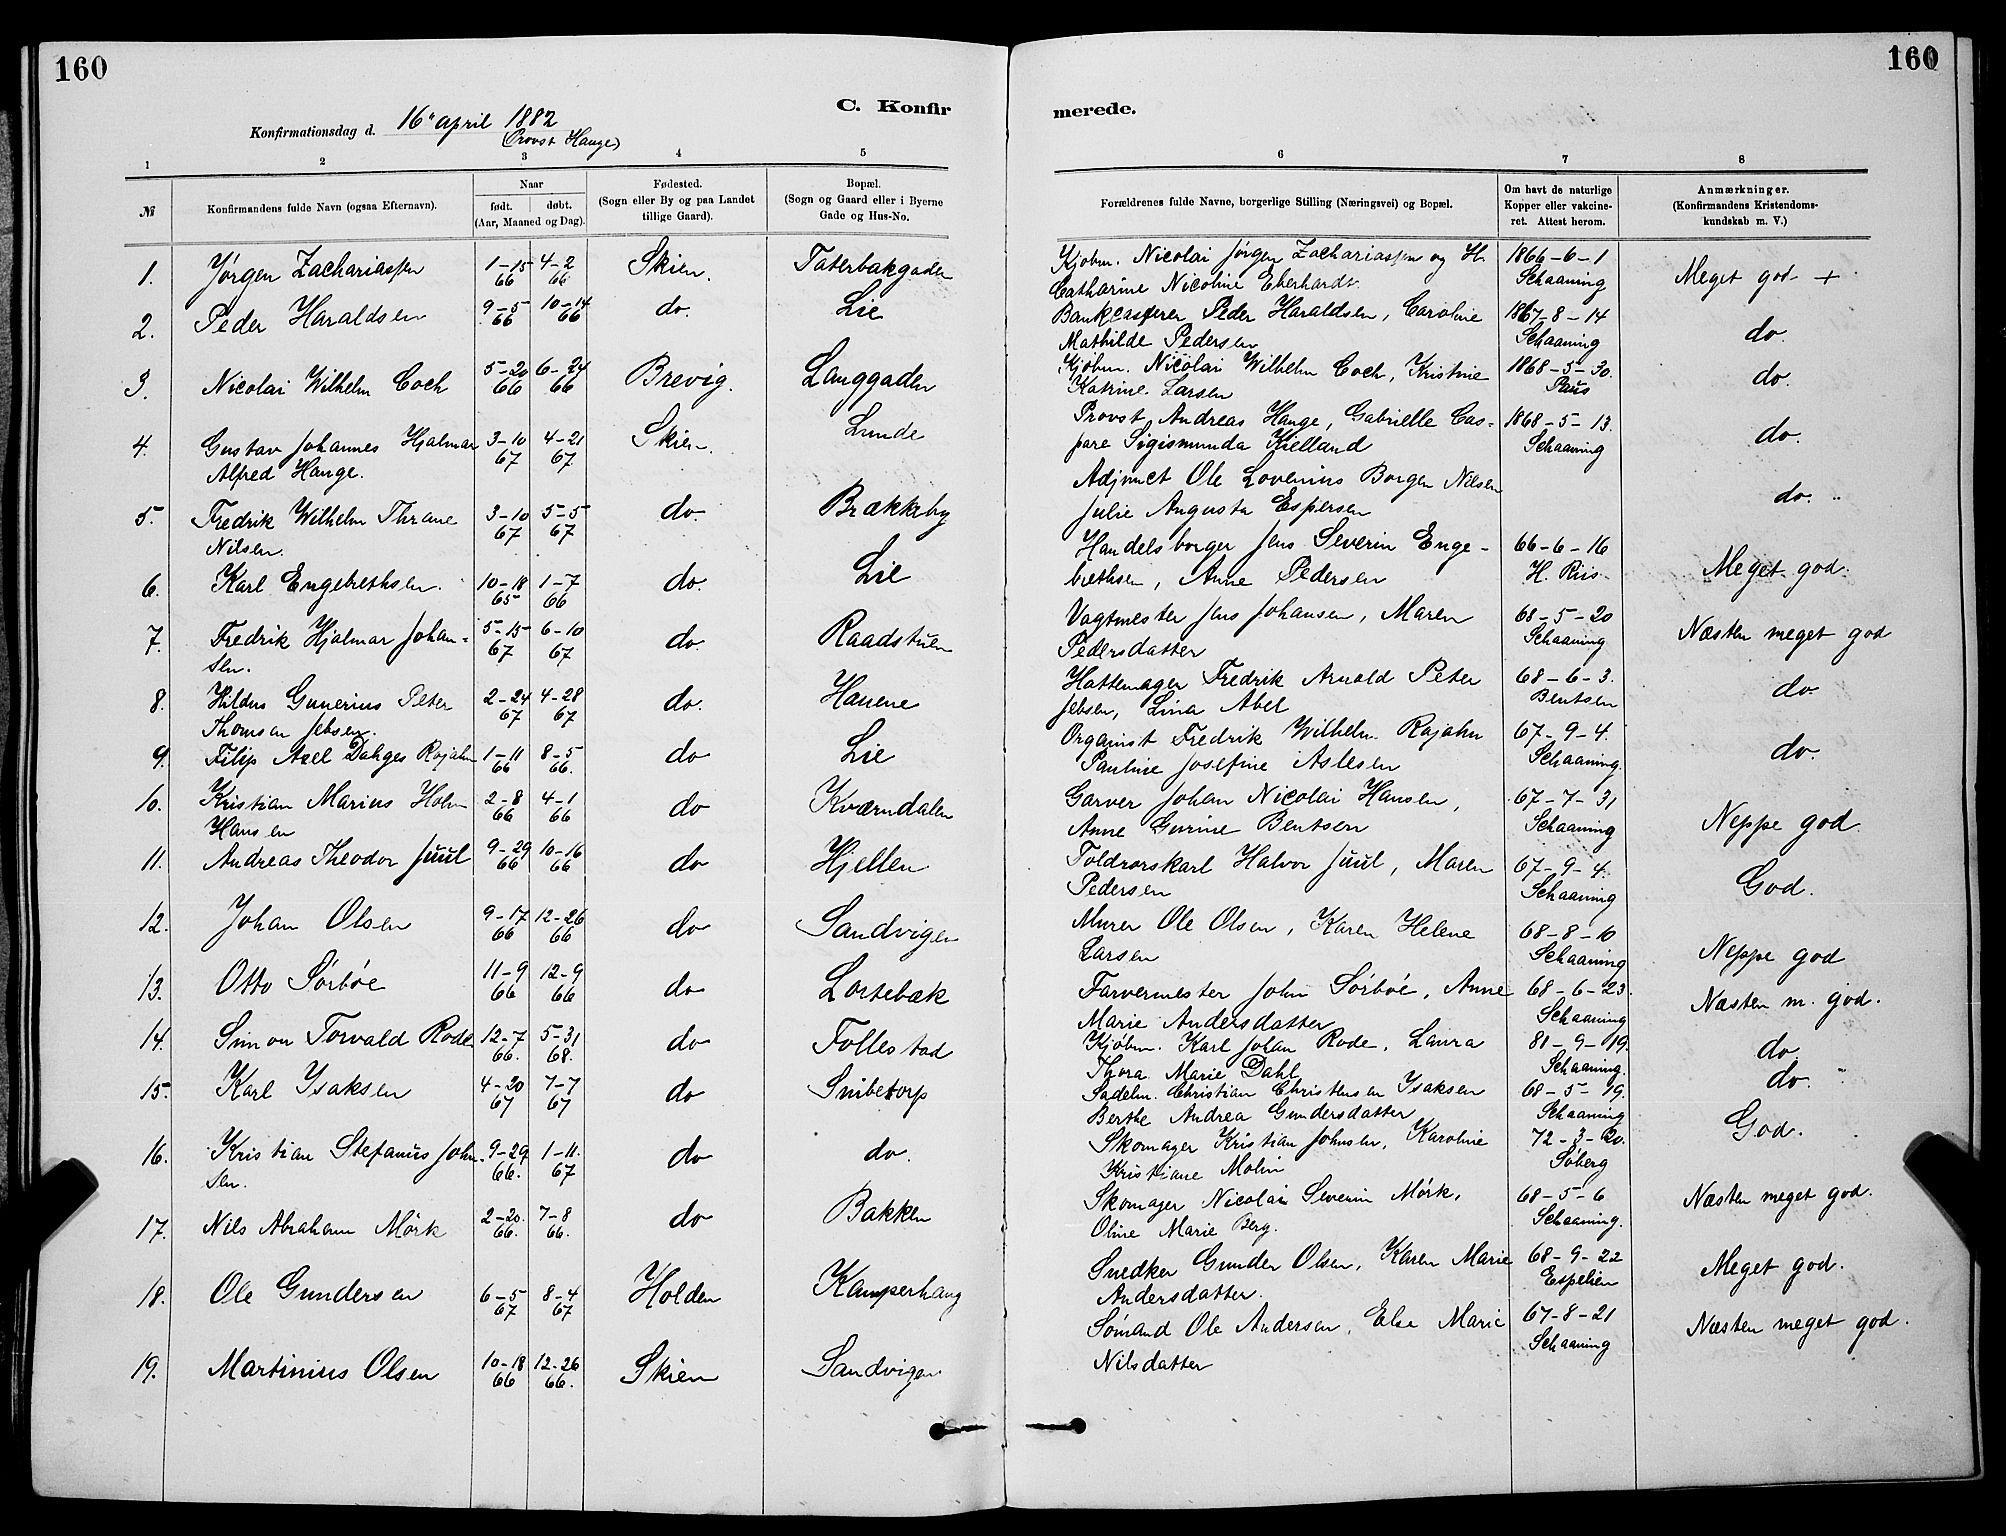 160
160
C. Konfir
merede.
Konfirmationsdag d. 16 april 1882
(Provst Hauge)
1 2 3 4 5
6 7 8
№
Konfirmandens fulde Navn (ogsaa Efternavn).
Naar
født. døbt.
(Aar, Maaned og Dag).
Fødested.
(Sogn eller By og paa Landet
tillige Gaard).
Bopæl.
(Sogn og Gaard eller i Byerne
Gade og Hus-No.
Forældrenes fulde Navne, borgerlige Stilling (Næringsvei) og Bopæl.
Om havt de naturlige
Kopper eller vakcine-
ret. Attest herom.
Anmærkninger.
(Konfirmandens Kristendoms-
kundskab m. V.)
1. Jørgen Zachariassen 1-15 66 4-2 66 Skien. Taterbakgaden
Kjøbm. Nicolai Jørgen Zachariassen og H. 1866-6-1
Catharine Nicoline Eberhardt Schaaning Meget god +
2. Peder Haraldsen 9-5 66 10-14 66 do. Lie
Bankcasserer Peder Haraldsen, Caroline 1867-8-14
Mathilde Pedersen Schaaning do.
3. Nicolai Wilhelm Coch 5-20 66 6-24 66 Brevig. Langgaden
Kjøbm. Nicolai Wilhelm Coch, Kristine 1868-5-30.
Katrine Larsen Paus do.
4. Gustav Johannes Hjalmar 3-10 67 4-21 67 Skien. Lunde
Alfred Hauge.
Provst Andreas Hauge, Gabrielle Cas- 1868-5-13.
pare Sigismunda Kielland Schaaning do.
5. Fredrik Wilhelm Thrane 3-10 67 5-5 67 do. Brækkeby
Nilsen.
Adjunct Ole Lovenius Borgen Nilsen
Julie Augusta Espersen do.
6. Karl Engebrethsen. 10-18 65 1-7 66 do. Lie
Handelsborger Jens Severin Enge- 66-6-16
brethsen, Anne Pedersen H. Riis. Meget god.
7. Fredrik Hjalmar Johan- 5-15 67 6-10 67 do. Raadstuen
sen.
Vagtmester Jens Johansen, Maren 68-5-20
Pedersdatter Schaaning Næsten meget god
8. Hildus Gunerius Peter 2-24 67 4-28 67 do. Hauene
Thomsen Jebsen.
Hattemager Fredrik Arnold Peter 68-6-3.
Jebsen, Lina Abel Bentsen do
9. Filip Axel Rojahn 1-11 66 8-5 66. do Lie
Organist Fredrik Wilhelm Rojahn 67-9-4.
Pauline Josefine Aslesen Schaaning. do.
10. Kristian Marius Holm 2-8 66 4-1 66 do Kværndalen
Hansen
Garver Johan Nicolai Hansen, 67-7-31
Anne Gurine Bentsen Schaaning Neppe god.
11. Andreas Theodor Juul 9-29 66 10-16 66 do Hjellen
Toldrorskarl Halvor Juul, Maren 67-9-4.
Pedersen Schaaning God.
12. Johan Olsen 9-17 66 12-26 66 do Sandvigen
Murer Ole Olsen, Karen Helene 68-8-10
Larsen Schaaning Neppe god
13. Otto Sörböe 11-9 66 12-9 66 do Lortebæk
Farvermester John Sörböe, Anne 68-6-23.
Marie Andersdatter Schaaning Næsten m. god.
14. Simon Torvald Rode 12-7 66. 5-31 68. do Follestad
Kjøbm. Karl Johan Rode, Laura 81-9-19.
Thora Marie Dahl Schaaning. do
15. Karl Ysaksen 4-20 67 7-7 67 do Snibetorp
Sadelm. Christian Christensen Ysaksen 68-5-19.
Berthe Andrea Gundersdatter Schaaning do.
16. Kristian Stefanus John- 9-29 66. 1-11. 67 do do.
sen.
Skomager Kristian Johnsen, Karoline 72-3-20.
Kristiane Molin Søberg God.
17. Nils Abraham Mörk 2-20. 66. 7-8 66. do Bakken
Skomager Nicolai Severin Mörk, 68-5-6
Oline Marie Berg. Schaaning. Næsten meget god.
18. Ole Gundersen 6-5 67 8-4 67 Holden Kamperhaug
Snedker Gunder Olsen, Karen Marie 68-9-22
Andersdatter. Espelien Meget god.
19. Martinius Olsen 10-18 66 12-26 66. Skien Sandvigen
Sömand Ole Andersen, Else Marie 67-8-21
Nilsdatter Schaaning Næsten meget god.